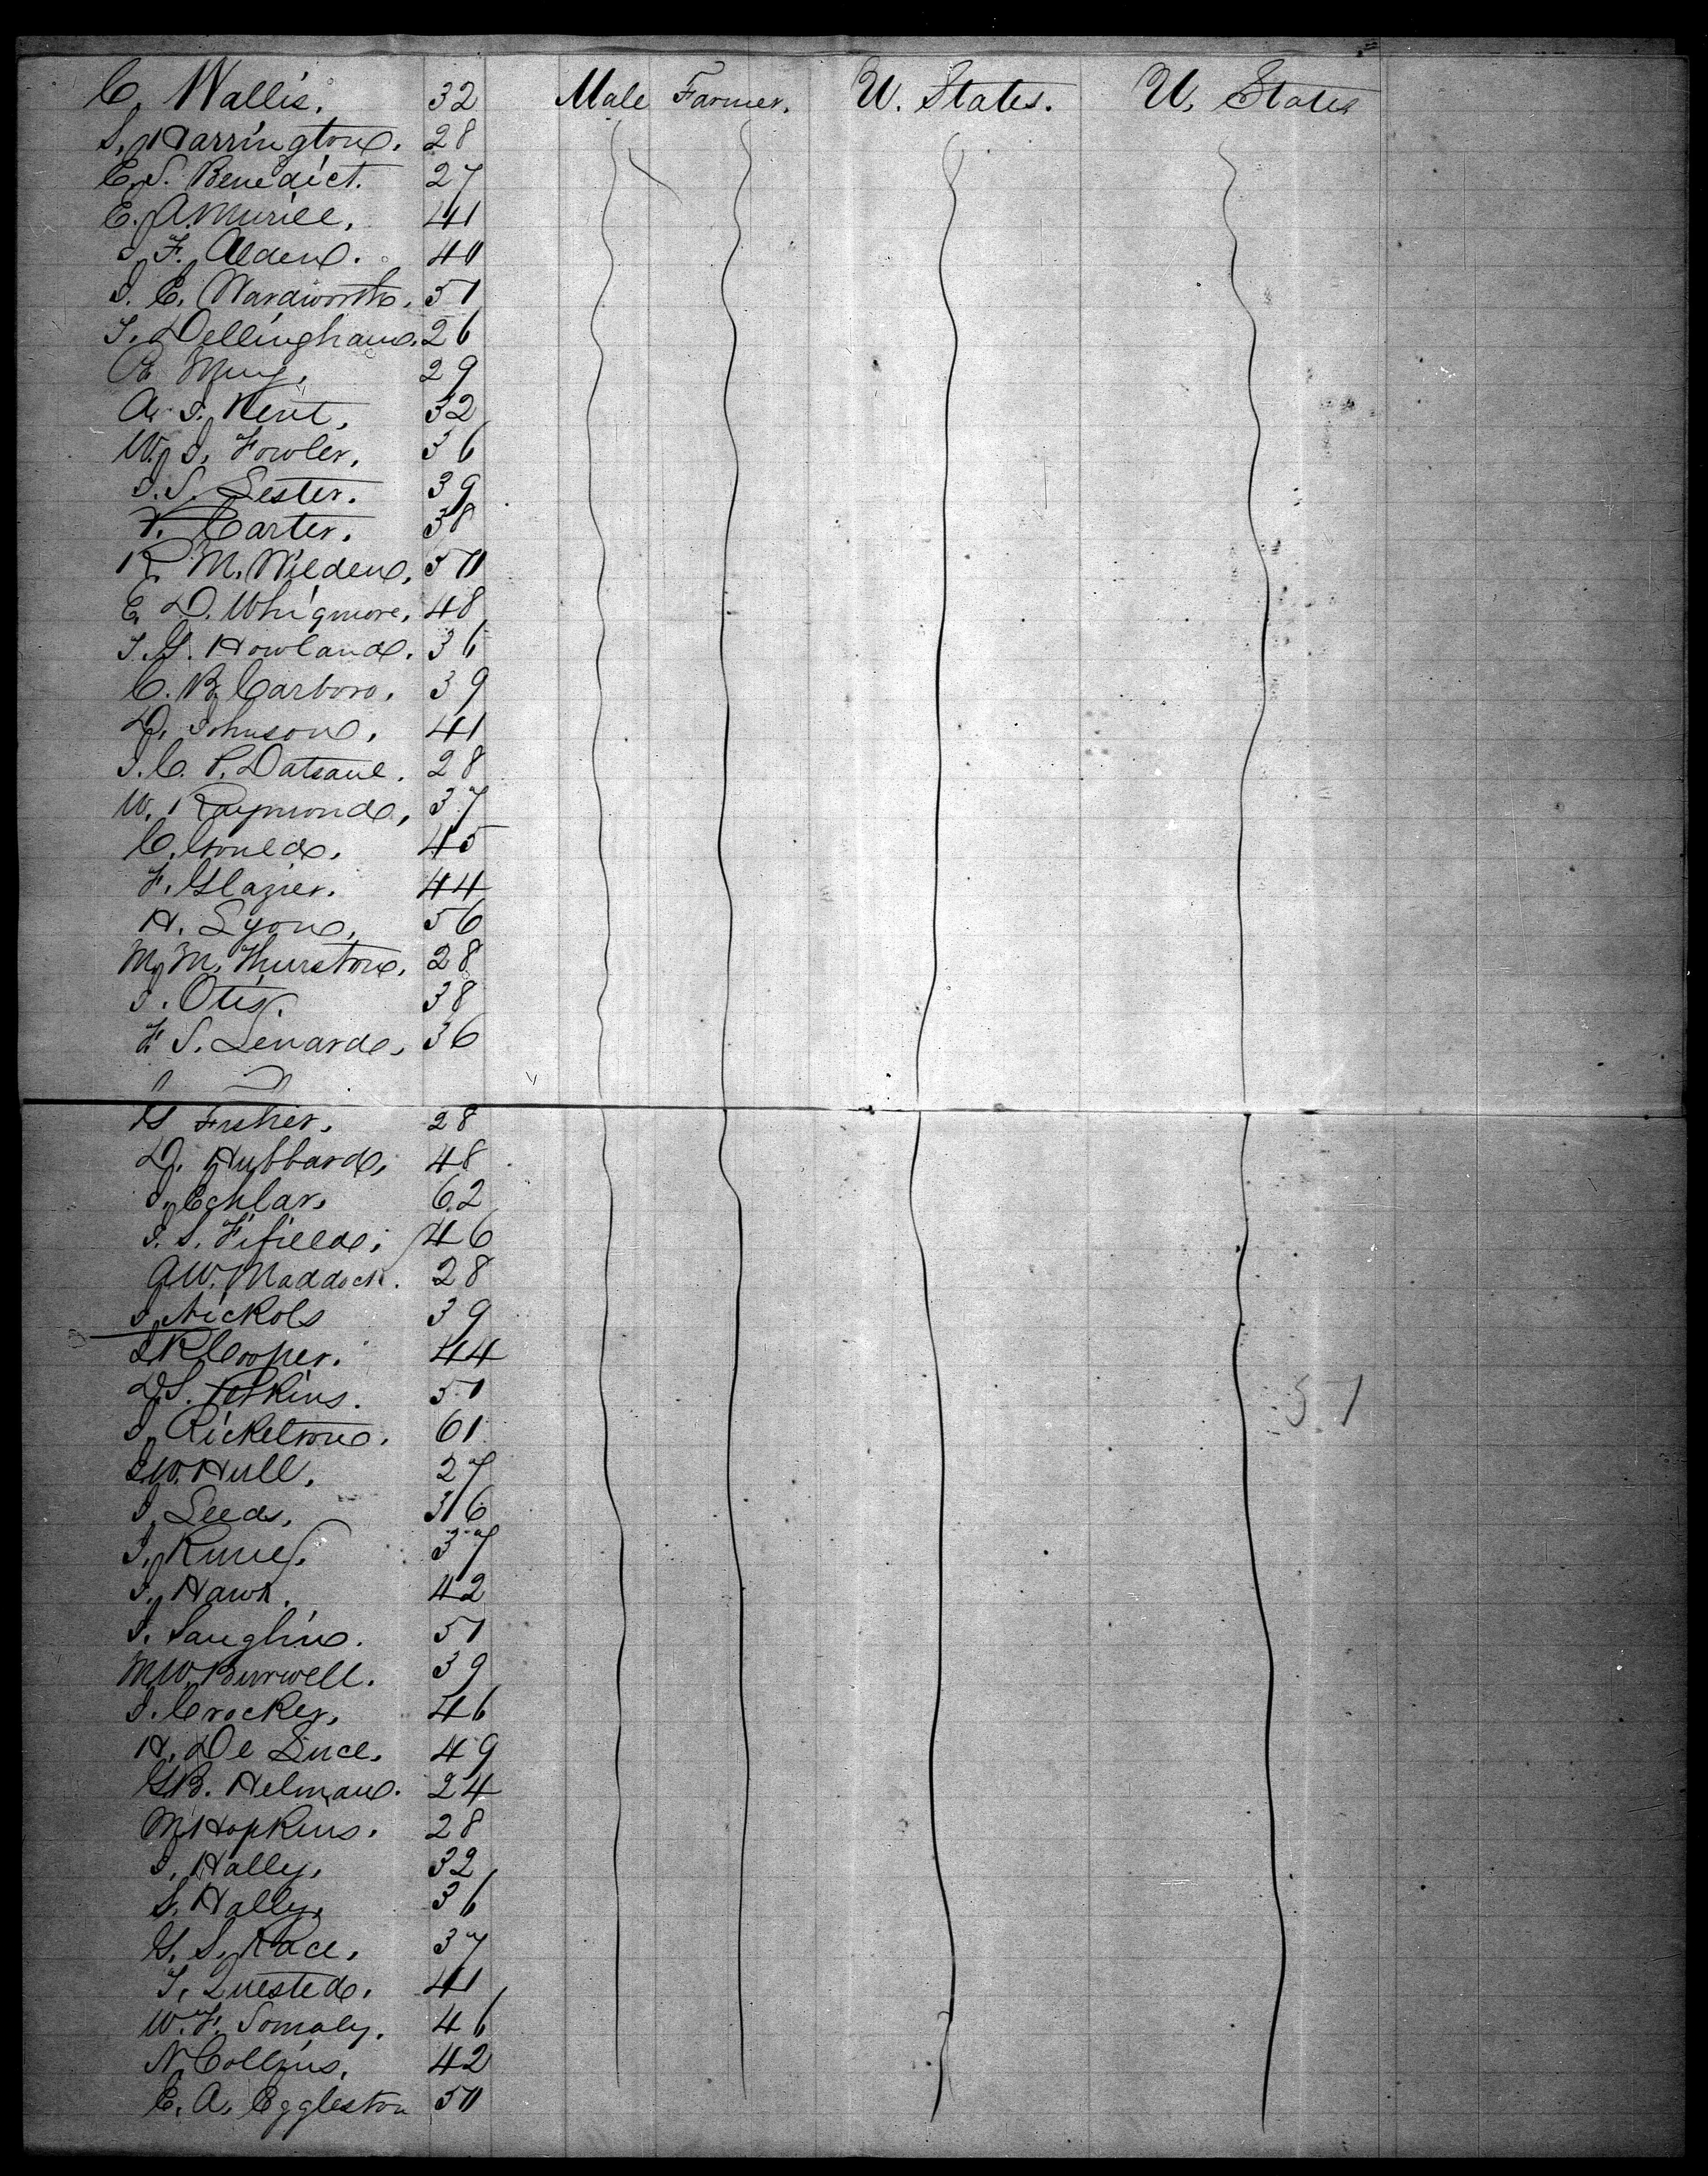 C. Wallis. 32 Male Farmer. U. States. U. States
S. Harrington. 28
E. S. Benedict. 27
E. A. Murill. 41
J. F. Alden. 40
J. E. Wardworth. 51
T. Dellingham. 26
29
A. J. Kent. 32
W. J. Fowler. 36
J. S. Lester. 39
Carter. 38
R. M. Wilden. 50
E. D. Whigmore. 48
T. G. Howland. 36
C. B. Carboro. 39
D. Johnson. 41
J. C. P. Datsaul. 28
W. Raymond. 37
C. Gould. 45
F. Glazier. 44
H. Lyon. 56
M. M. Thurston. 28
J. Otis. 38
F. S. Lenard. 36
G Fisher. 28
D. Hubbard. 48
J. Echlar. 62
J. S. Fifield. 46
A. W. Maddock. 28
J. Nickols 39
J. R. Cooper. 44
D. S. Perkins. 51
57
J. Ricketson. 61
J. W. Hull. 27
J. Leeds. 36
J. 37
J. Hawk. 42
J. Laughlin. 51
M. W. Burwell. 39
J. Crocker. 46
H. De Luce. 49
G. B. Helman. 24
M. Hopkins. 28
J. Hally. 32
S. Hally. 36
G. S. Race. 37
T. Quested. 41
W. F. Somaly. 46
N. Collins. 42
E. A. Eggleston 50